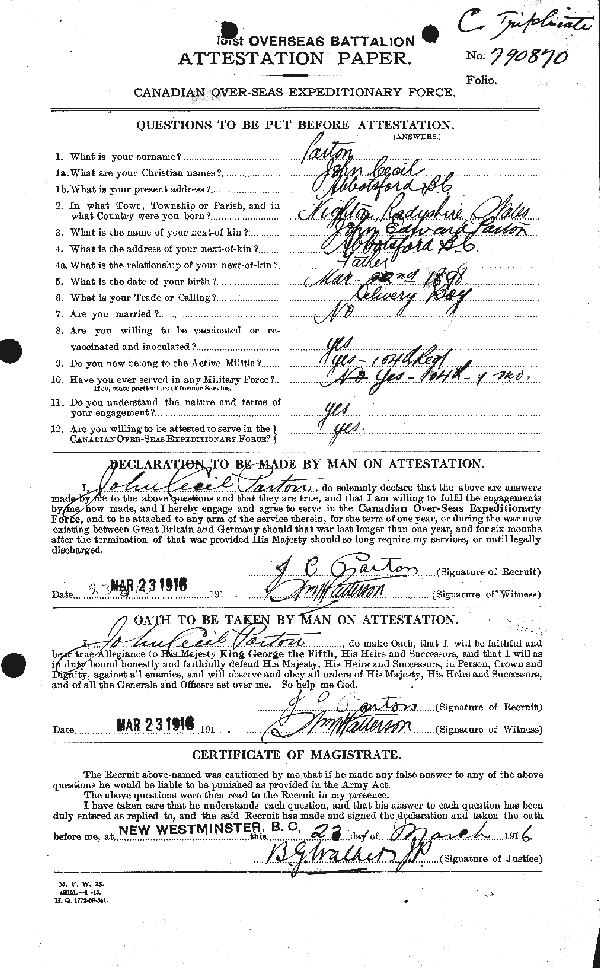 C Triplicate
131st OVERSEAS BATTALION
ATTESTATION PAPER.
No. 790870
Folio.
CANADIAN OVER-SEAS EXPEDITIONARY FORCE.
QUESTIONS TO BE PUT BEFORE ATTESTATION.
(ANSWERS.)
1. What is your surname? Parton
1a. What are your Christian names? John Cecil
1b. What is your present address? Abbotsford BC
2. In what Town, Township or Parish, and in
what Country were you born? Knighton Radnorshire Wales
3. What is the name of your next-of-kin? John Edward Parton
4. What is the address of your next-of-kin? Abbotsford B.C.
4a. What is the relationship of your next-of-kin? Father
5. What is the date of your birth? Mar 22nd 1898
6. What is your Trade or Calling? Delivery Boy
7. Are you married? No
8. Are you willing to be vaccinated or re-
vaccinated and inoculated? yes
9. Do you now belong to the Active Militia? yes - 104th Regt
10. Have you ever served in any Military Force? No Yes - 104th - mo.
If so, state particulars of former Service.
11. Do you understand the nature and terms of
your engagement? yes
12. Are you willing to be attested to serve in the
CANADIAN OVER-SEAS EXPEDITIONARY FORCE? yes.
DECLARATION TO BE MADE BY MAN ON ATTESTATION.
I, John Cecil Parton, do solemnly declare that the above are answers
made by me to the above questions and that they are true, and that I am willing to fulfil the engagements
by me now made, and I hereby engage and agree to serve in the Canadian Over-Seas Expeditionary
Force, and to be attached to any arm of the service therein, for the term of one year, or during the war now
existing between Great Britain and Germany should that war last longer than one year, and for six months
after the termination of that war provided His Majesty should so long require my services, or until legally
discharged.
J C Parton (Signature of Recruit)
Date MAR 23 1916 191 Wm Patterson (Signature of Witness)
OATH TO BE TAKEN BY MAN ON ATTESTATION.
I, John Cecil Parton, do make Oath, that I will be faithful and
bear true Allegiance to His Majesty King George the Fifth, His Heirs and Successors, and that I will as
in duty bound honestly and faithfully defend His Majesty, His Heirs and Successors, in Person, Crown and
Dignity, against all enemies, and will observe and obey all orders of His Majesty, His Heirs and Successors,
and of all the Generals and Officers set over me. So help me God.
J C Parton (Signature of Recruit)
Date MAR 23 1916 191 Wm Patterson (Signature of Witness)
CERTIFICATE OF MAGISTRATE.
The Recruit above-named was cautioned by me that if he made any false answer to any of the above
questions he would be liable to be punished as provided in the Army Act.
The above questions were then read to the Recruit in my presence.
I have taken care that he understands each question, and that his answer to each question has been
duly entered as replied to, and the said Recruit has made and signed the declaration and taken the oath
before me, at NEW WESTMINSTER, B. C. this 23 day of March 1916
B G Walker JP (Signature of Justice)
M. F. W. 23.
H. Q. 1772-39-841.